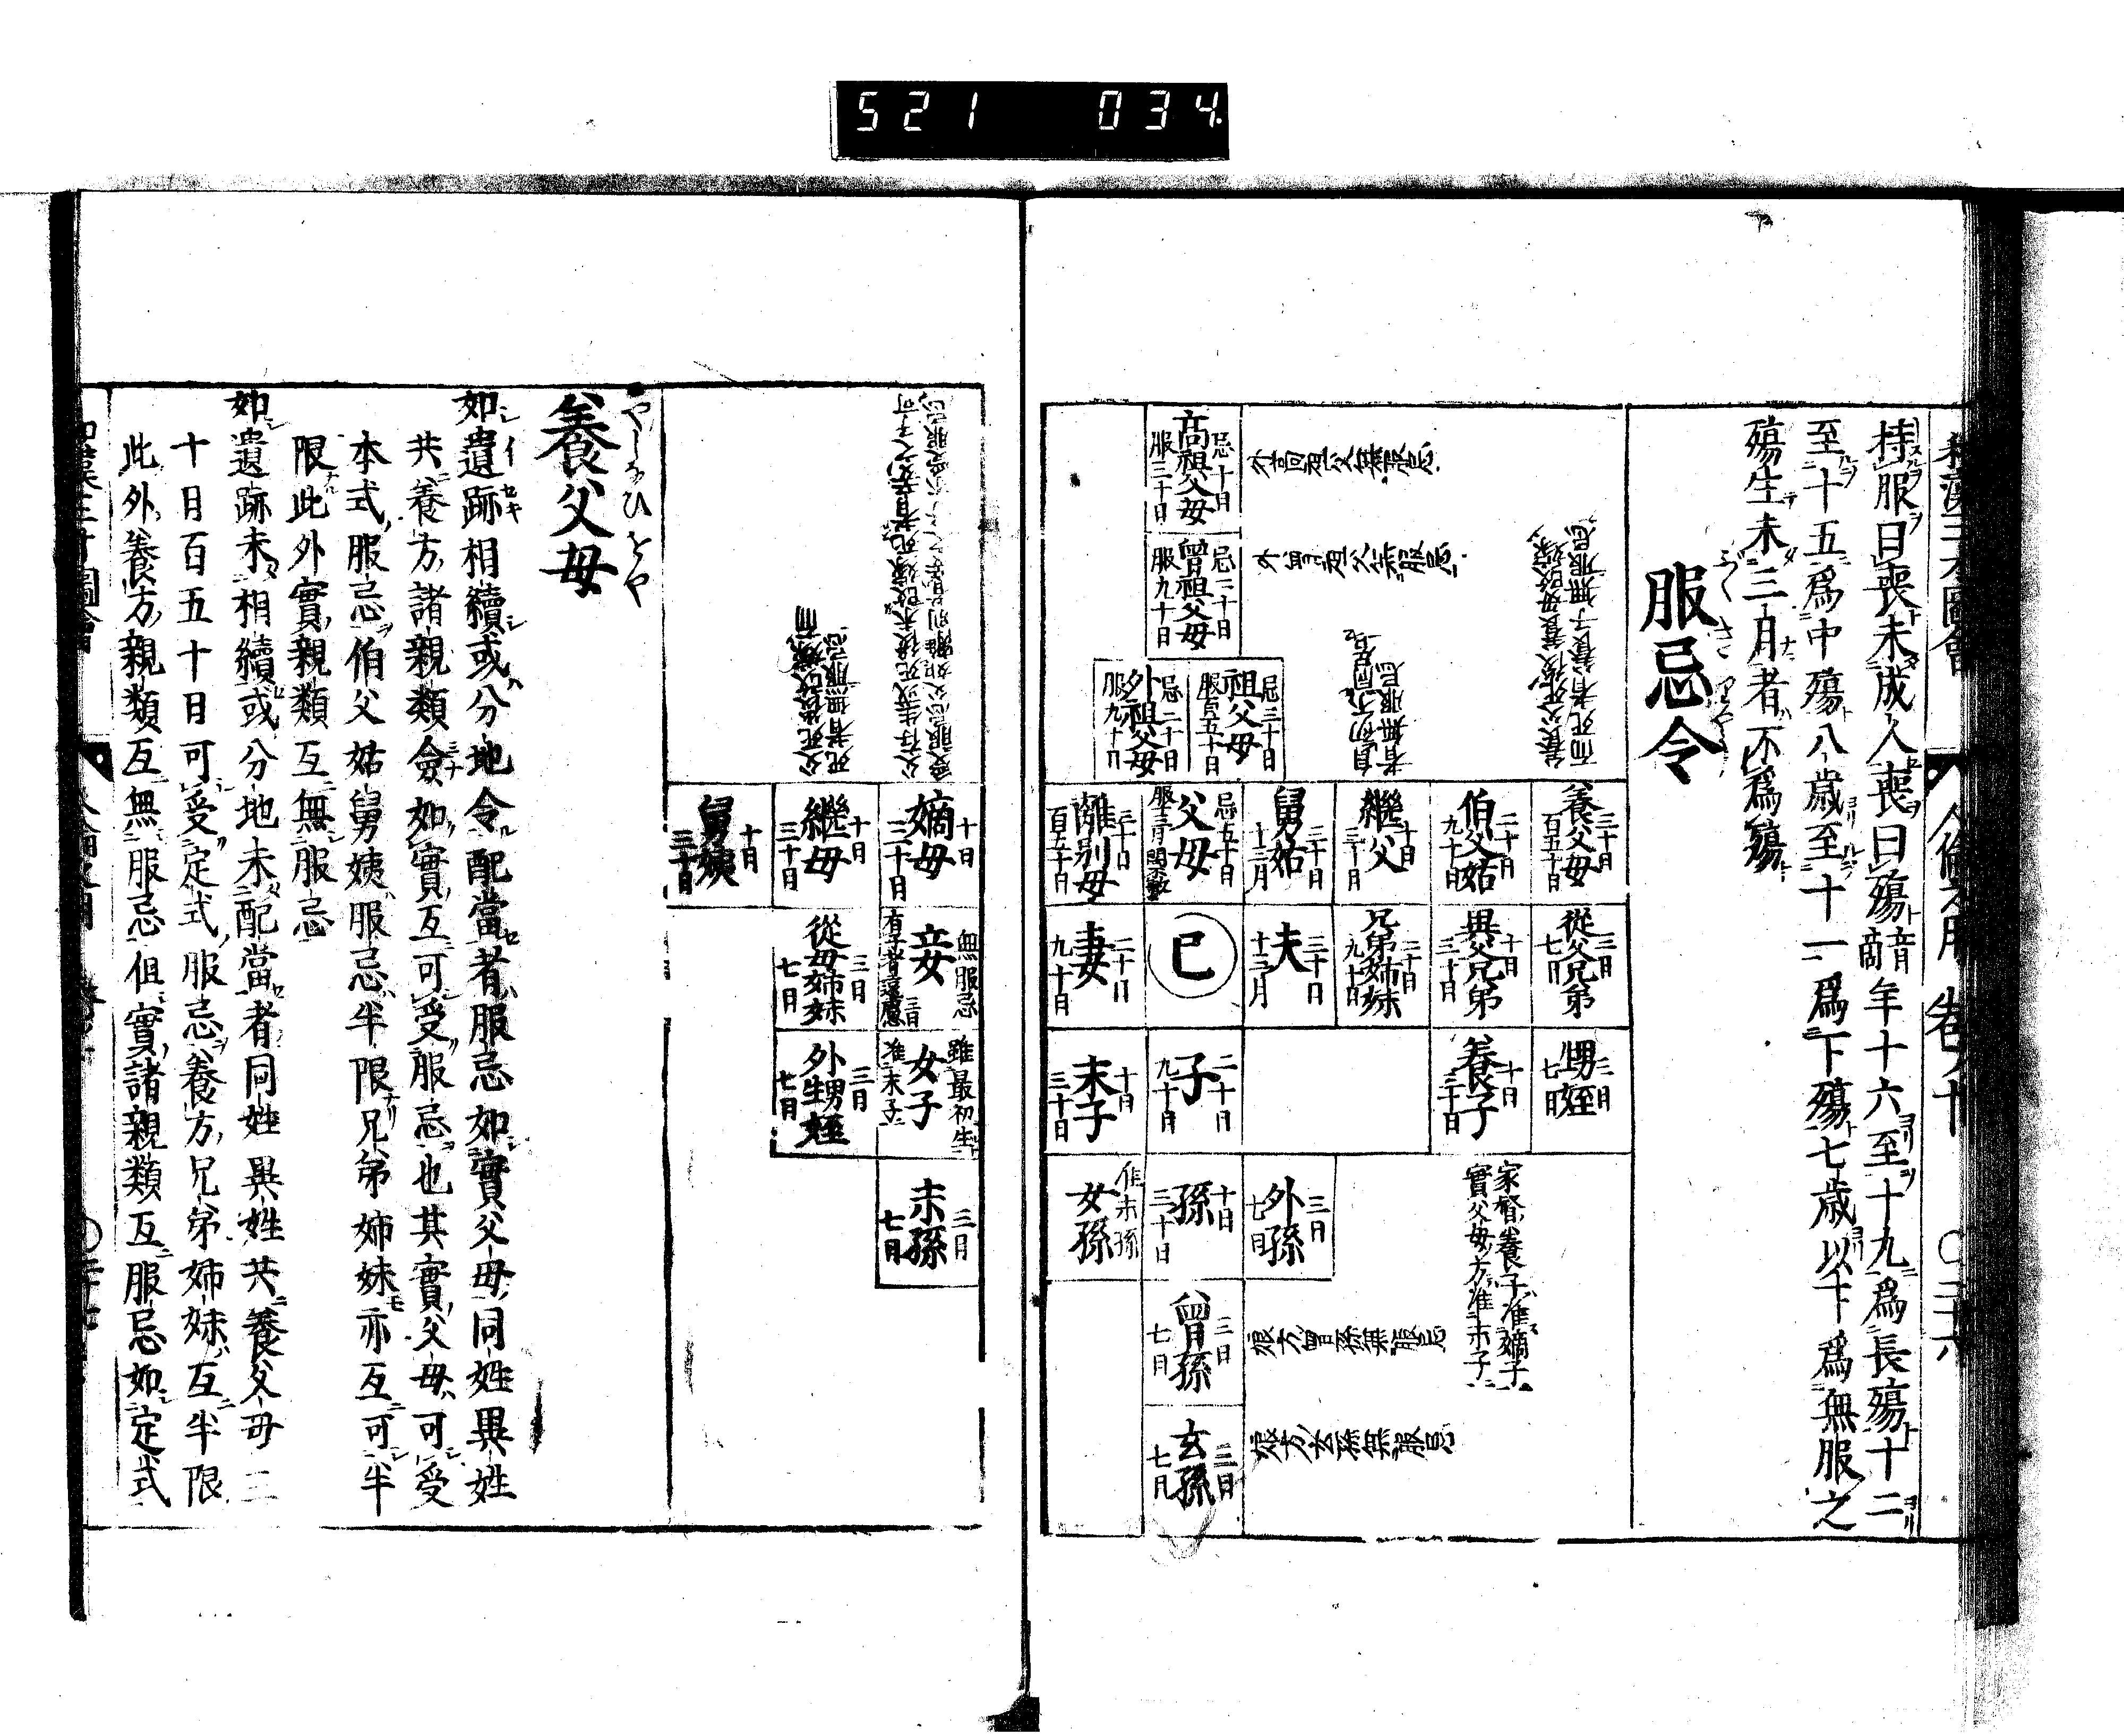 521 034.
和漢三才圖會
人倫之用 卷ノ十
持服曰喪未成人喪曰殤音商年十六至十九爲長殤十二
至十五爲中殤八歲至十一爲下殤七歲以下爲無服之
殤生未三月者不爲殤
服忌令
養父死後養母改嫁
而死者養子無服忌
者無服忌
外曾祖父無服忌
外高祖父無服忌
忌十日
高祖父母
服三十日
忌二十日
曾祖父母
服九十日
忌三十日
祖父母
服百五十日
忌二十日
外祖父母
服九十日
三十日
養父母
百五十日
二十日
伯父姑
九十日
十日
繼父
三十日
三十日
舅姑
忌五十日
父母
三十日
離別母
百五十日
三日
從父兄弟
七日
十日
異父兄弟
三十日
二十日
兄弟姉妹
九十日
三十日
夫
十三月
己
二十日
妻
九十日
三日
甥姪
七日
十日
養子
三十日
二十日
子
九十日
十日
末子
三十日
家督養子准嫡子
實父母方准末子
三日
外孫
七日
十日
孫
三十日
准末孫
女孫
三日
曾孫
七日
娘方曾孫無服忌
三日
玄孫
七日
娘方玄孫無服忌
父死後改嫁而
死者無服忌
十日
嫡母
三十日
十日
繼母
三十日
十日
舅姨
三十日
無服忌
妾
三日
從母姉妹
七日
雖最初生
女子
准末子
三日
外甥姪
七日
三日
末孫
七日
やしなひをや
養父母
如遺跡相續或分地令配當者服忌如實父母同姓異姓
共養方諸親類僉如實互可受服忌也其實父母可受
本式服忌伯父姑舅姨服忌半限兄弟姉妹亦互可半
限此外實親類互無服忌
如遺跡未相續或分地未配當者同姓異姓共養父母三
十日百五十日可受定式服忌養方兄弟姉妹互半限
此外養方親類互無服忌但實諸親類互服忌如定式